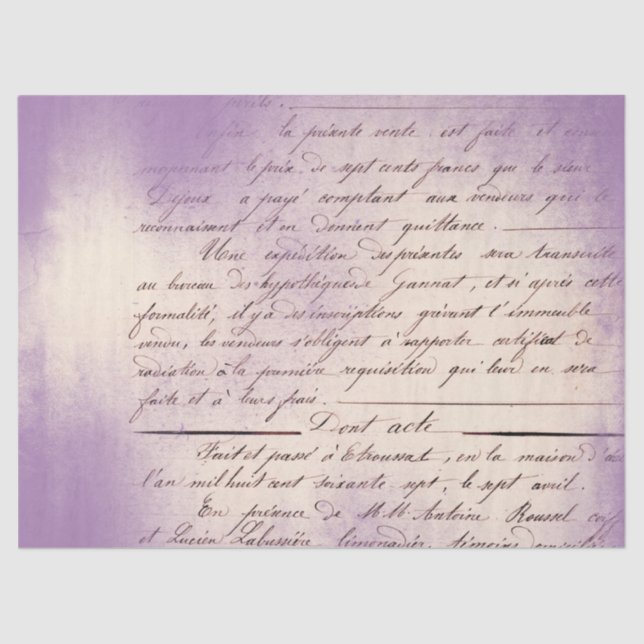 Enfin la présente vente est faite et
moyennant le prix de sept cents francs que le sieur
Dejoux a payé comptant aux vendeurs qui le
reconnaissent et en donnent quittance.
Une expédition des présentes sera transcrite
au bureau des hypothèques de Gannat, et si après cette
formalité, il y a des inscriptions grévant l'immeuble
vendu, les vendeurs s'obligent à rapporter certificat de
radiation à la première requisition qui leur en sera
faite et à leurs frais.
Dont acte
Fait et passé à Etroussat, en la maison
l'an mil huit cent soixante sept, le sept avril.
En présence de M.M. Antoine Roussel
et Lucien Labussière limonadier, témoins